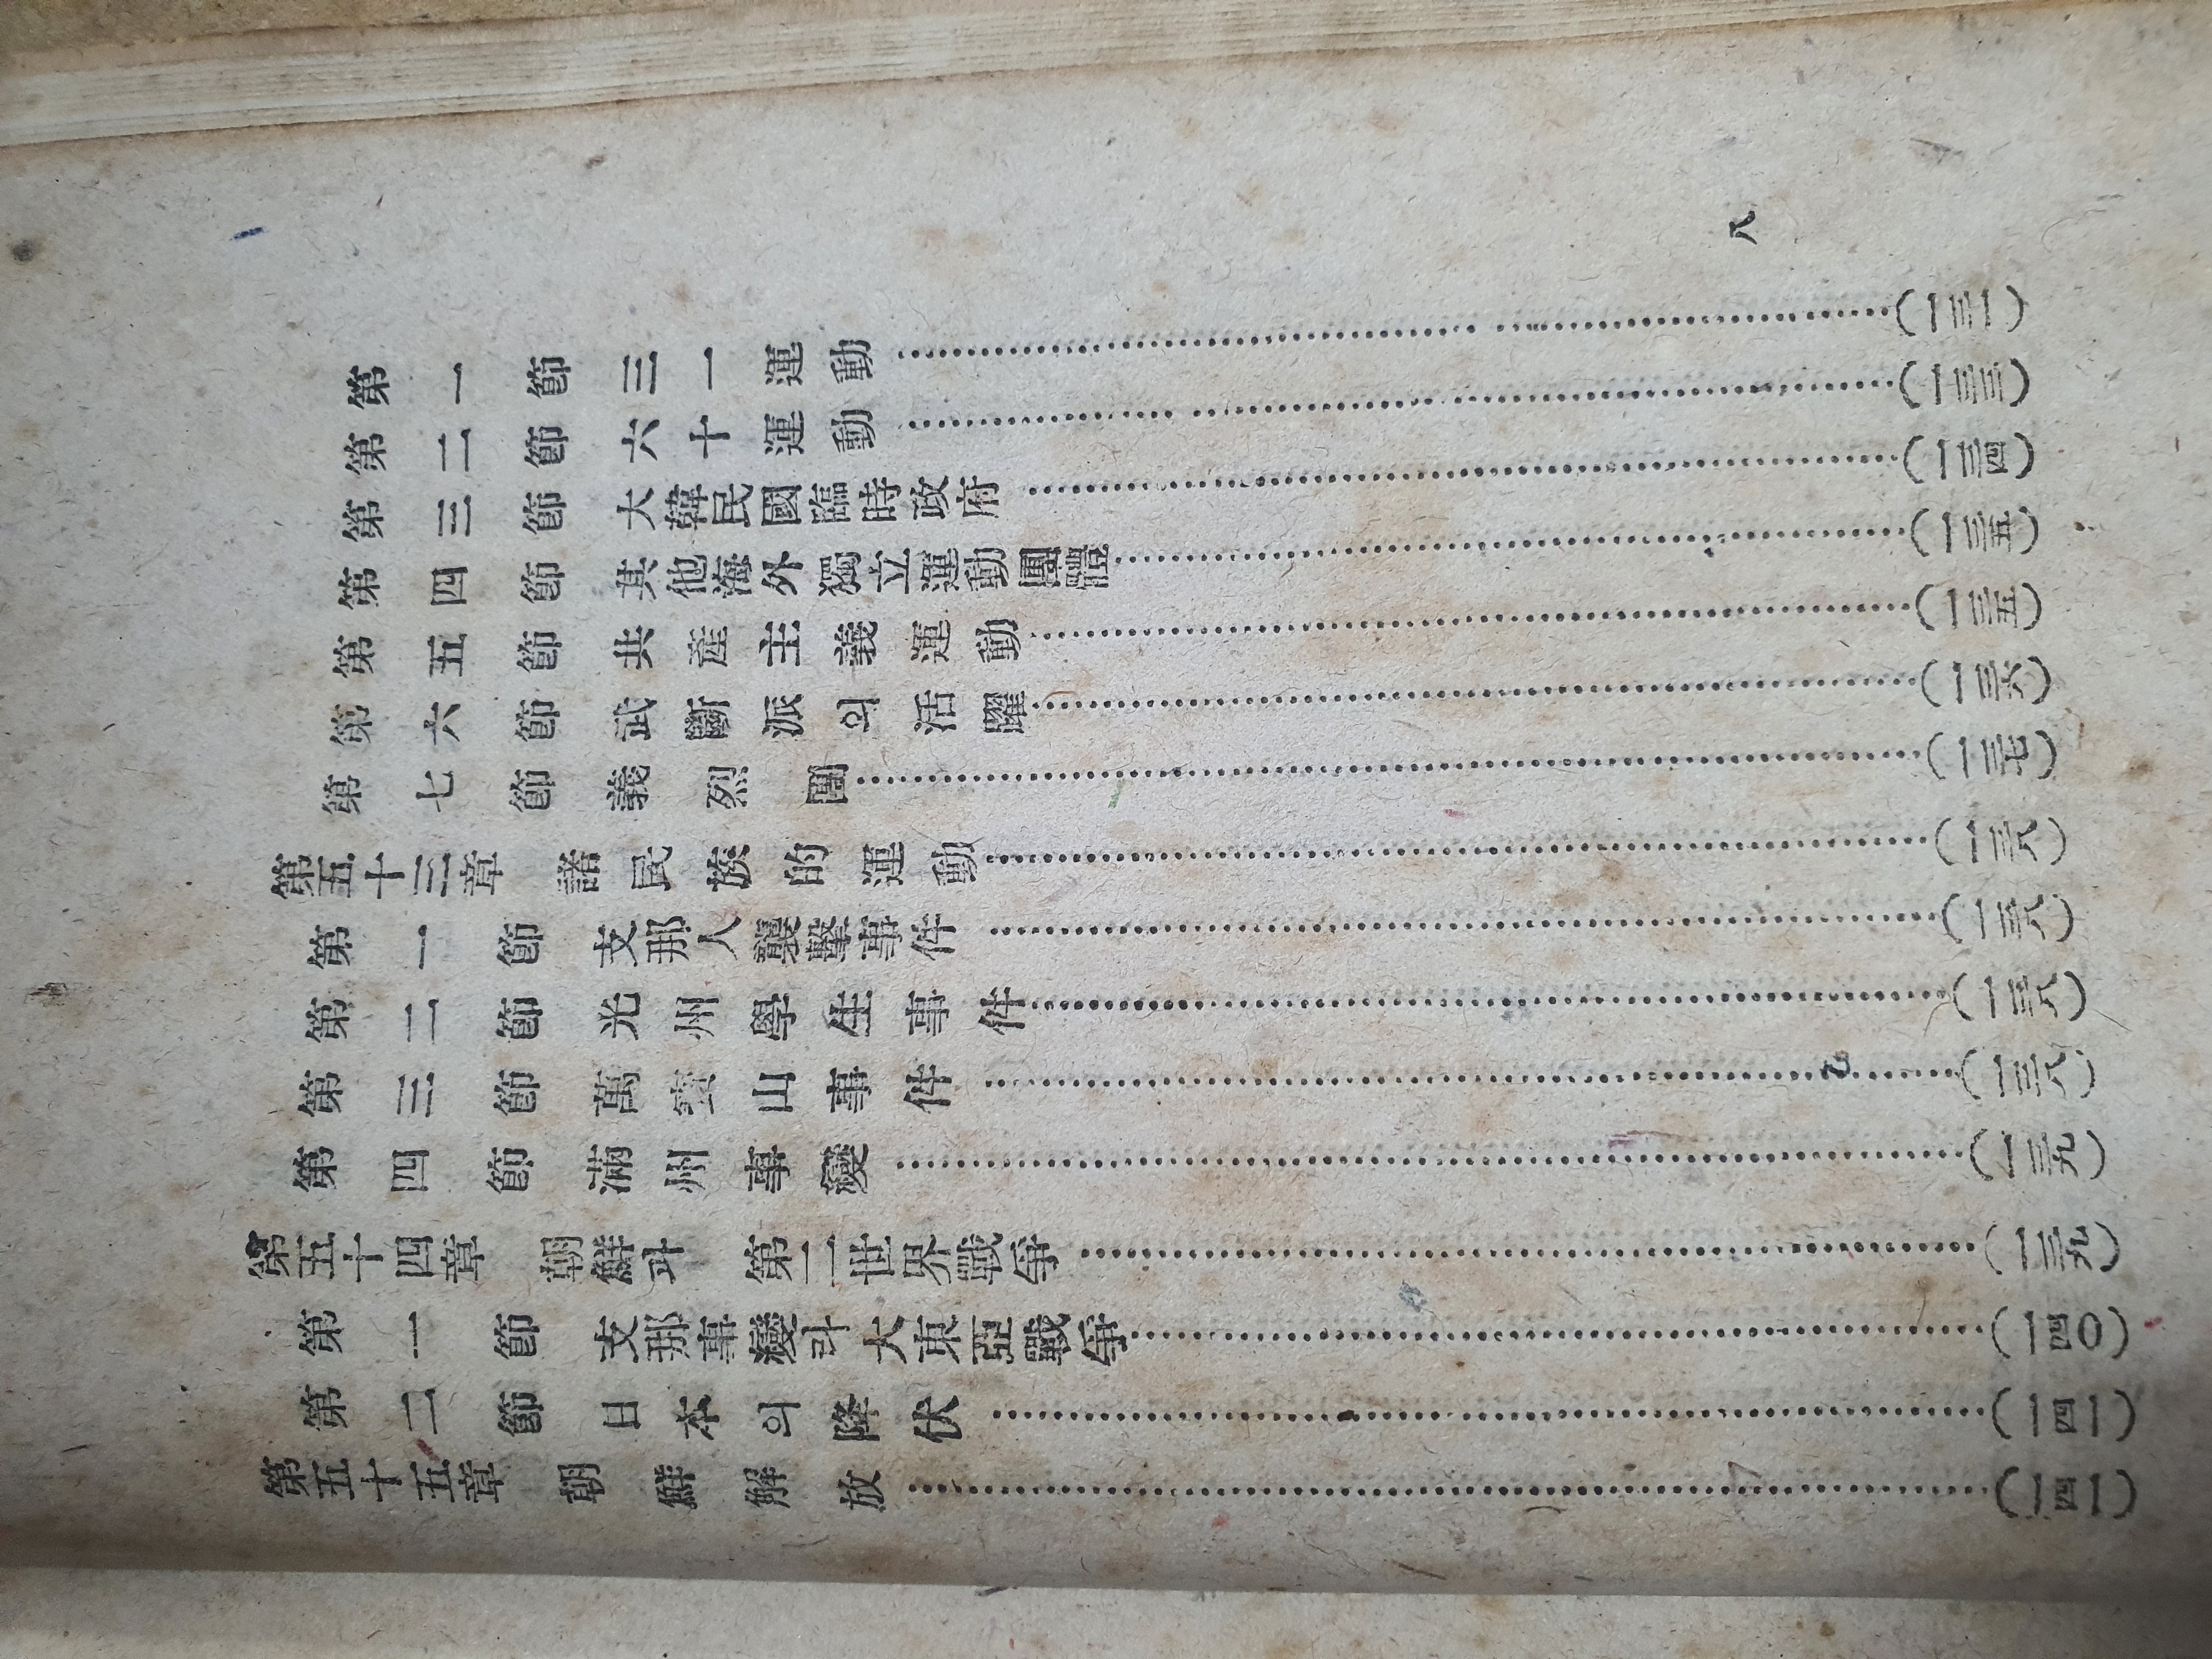 八
第一節 三一運動……(一三一)
第二節 六十運動……(一三三)
第三節 大韓民國臨時政府……(一三四)
第四節 其他海外獨立運動團體……(一三五)
第五節 共産主義運動……(一三五)
第六節 武斷派의活躍……(一三六)
第七節 義烈團……(一三七)
第五十三章 諸民族的運動……(一三八)
第一節 支那人襲擊事件……(一三八)
第二節 光州學生事件……(一三八)
第三節 萬寶山事件……(一三八)
第四節 滿州事變……(一三九)
第五十四章 朝鮮과 第二世界戰爭……(一三九)
第一節 支那事變과大東亞戰爭……(一四〇)
第二節 日本의降伏……(一四一)
第五十五章 朝鮮解放……(一四一)